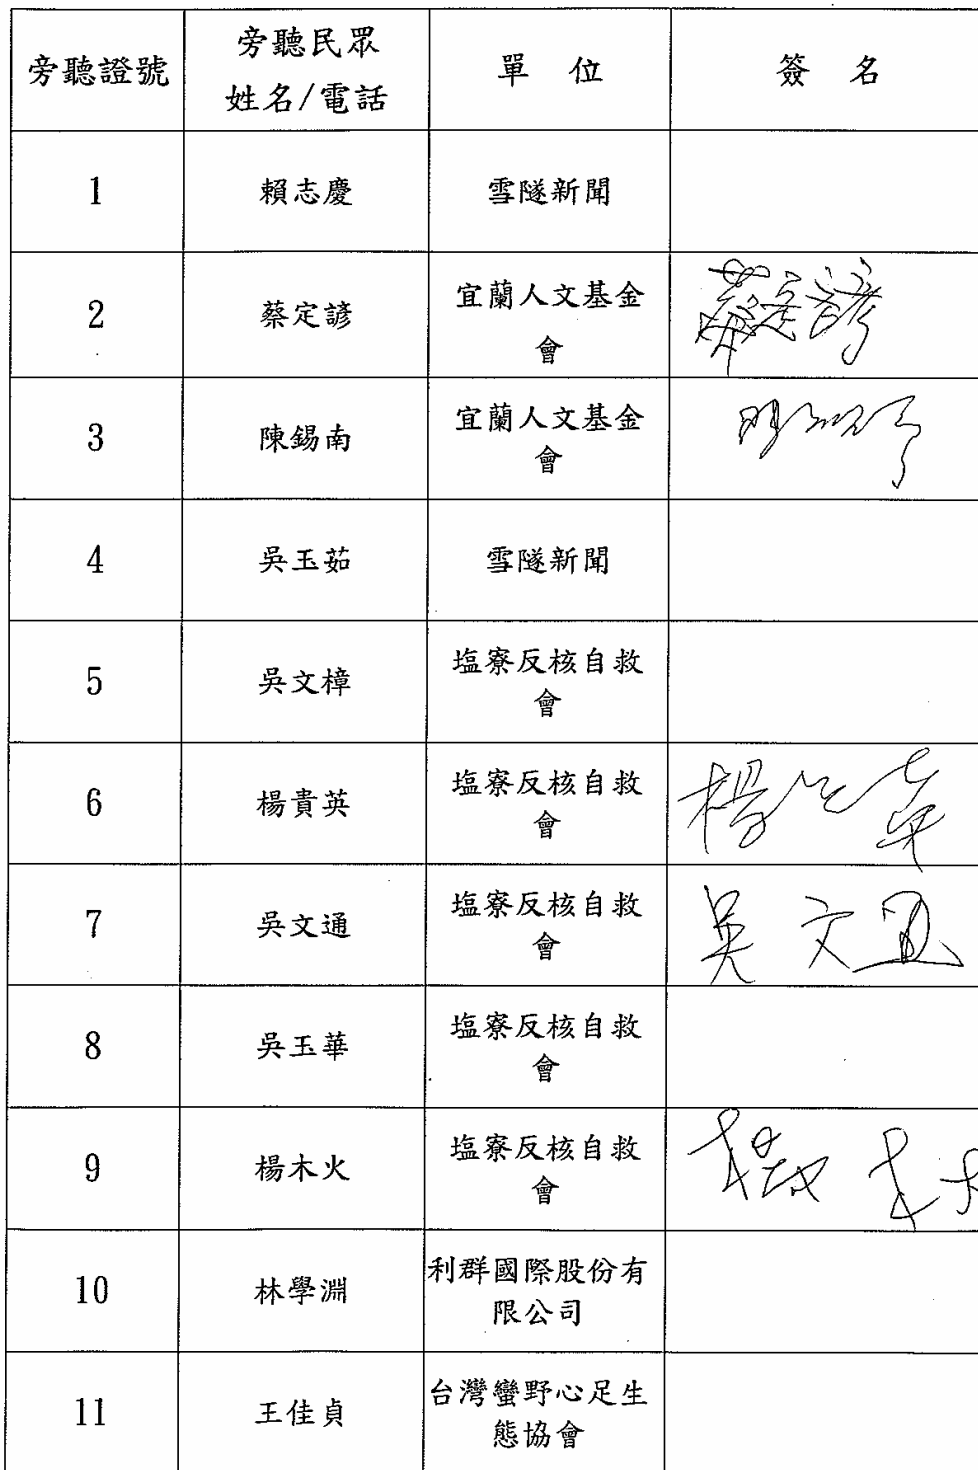 旁聽證號 旁聽民眾 單 位 簽 名
姓名/電話
1 賴志慶 雪隧新聞
2 蔡定諺 宜蘭人文基金 蔡定諺
會
3 陳錫南 宜蘭人文基金
會
4 吳玉茹 雪隧新聞
5 吳文樟 塩寮反核自救
會
6 楊貴英 塩寮反核自救 楊
會
7 吳文通 塩寮反核自救 吳文通
會
8 吳玉華 塩寮反核自救
會
9 楊木火 塩寮反核自救
會
10 林學淵 利群國際股份有
限公司
11 王佳貞 台灣蠻野心足生
態協會